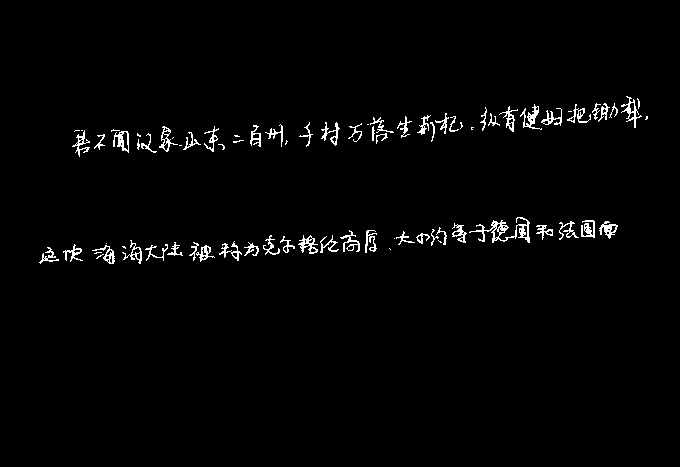 君不闻汉家山东二百州,千村万落生荆杞。纵有健妇把锄犁,
这块海海大陆被称为克尔格伦高原、大小约等于德国和法国面